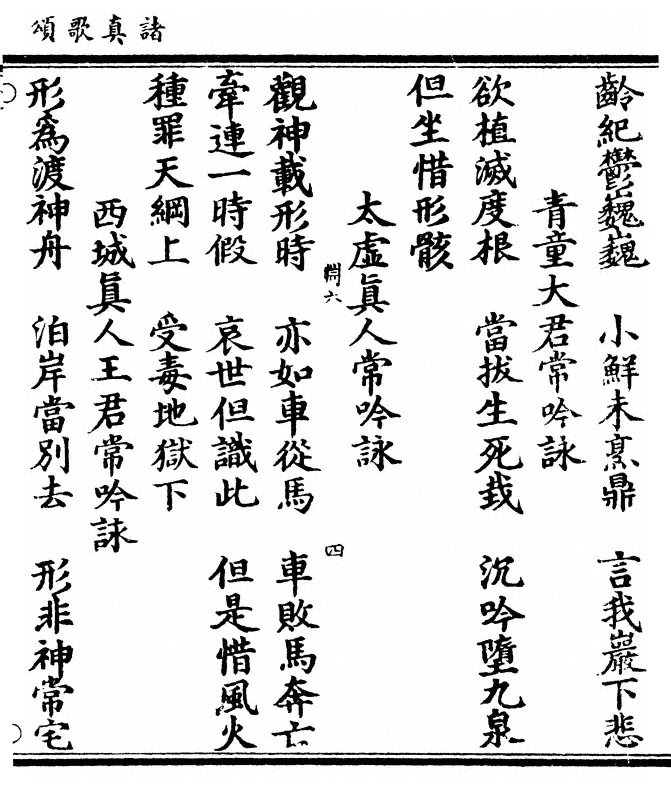 諸真歌頌
齡紀鬱巍巍　小鮮未烹鼎　言我巖下悲
青童大君常吟詠
欲植滅度根　當拔生死栽　沉吟墮九泉
但坐惜形骸
太虛眞人常吟詠
四
觀神載形時　亦如車從馬　車敗馬奔亡
牽連一時假　哀世但識此　但是惜風火
種罪天綱上　受毒地獄下
西城眞人王君常吟詠
形爲渡神舟　泊岸當別去　形非神常宅